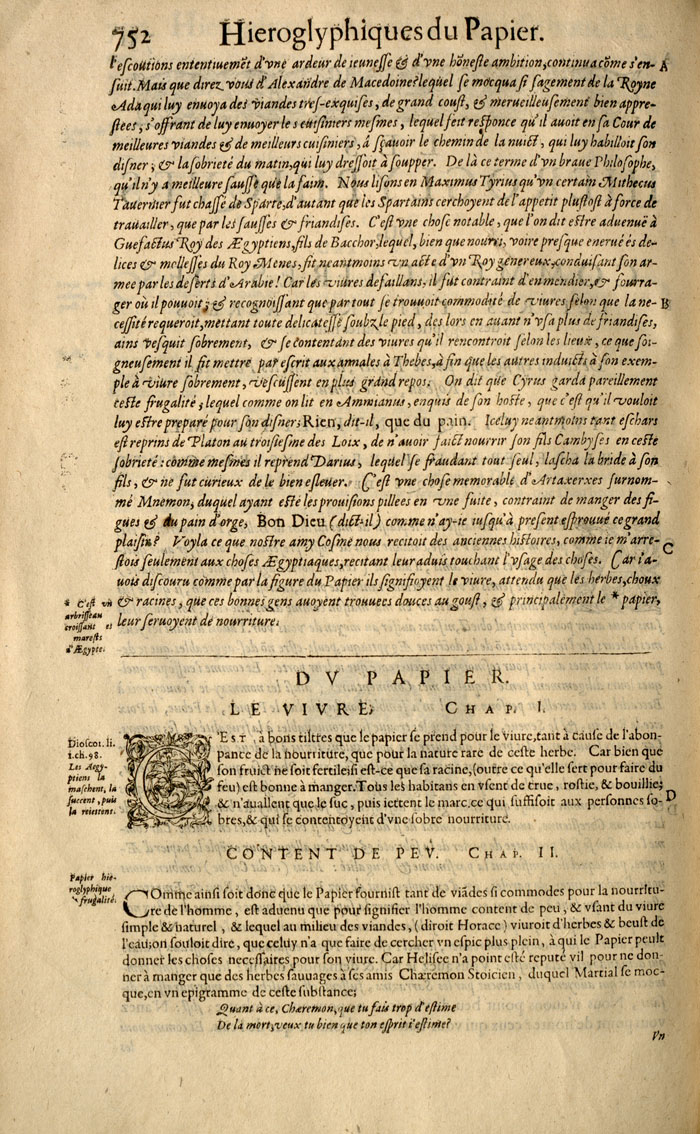 752 Hieroglyphiques du Papier.
l'escoutions ententiuemēt d'vne ardeur de ieunesse & d'vne hōneste ambition, continua cōme s'en- A
suit. Mais que direz vous d'Alexandre de Macedoine? lequel se mocqua si sagement de la Royne
Ada qui luy enuoya des viandes tres-exquises, de grand coust, & merueilleusement bien appre-
stees, s'offrant de luy enuoyer les cuisiniers mesmes, lequel feit responce qu'il auoit en sa Cour de
meilleures viandes & de meilleurs cuisiniers, á sçauoir le chemin de la nuict, qui luy habilloit son
disner; & la sobrieté du matin, qui luy dressoit à soupper. De là ce terme d'vn braue Philosophe,
qu'il n'y a meilleure sausse que la faim. Nous lisons en Maximus Tyrius qu'vn certain Mithecus
Tauernier fut chassé de Sparte, d'autant que les Spartains cerchoyent de l'appetit plustost à force de
trauailler, que par les sausses & friandises. C'est vne chose notable, que l'on dit estre aduenuë à
Guefactus Roy des Ægyptiens, fils de Bacchor, lequel, bien que nourri, voire presque enerué és de-
lices & mollesses du Roy Menes, fit neantmoins vn acte d'vn Roy genereux, conduisant son ar-
mee par les deserts d'Arabie! Car les viures defaillans, il fut contraint d'en mendier, & fourra-
ger où il pouuoit; & recognoissant que par tout se trouuoit commodité de viures selon que la ne- B
cessité requeroit, mettant toute delicatesse soubz le pied, des lors en auant n'vsa plus de friandises,
ains vesquit sobrement, & se contentant des viures qu'il rencontroit selon les lieux, ce que soi-
gneusement il fit mettre par escrit aux annales à Thebes, à fin que les autres induicts à son exem-
ple à viure sobrement, vescussent en plus grand repos. On dit que Cyrus garda pareillement
ceste frugalité, lequel comme on lit en Ammianus, enquis de son hoste, que c'est qu'il vouloit
luy estre preparé pour son disner; Rien, dit-il, que du pain. Iceluy neantmoins tant eschars
est reprins de Platon au troisiesme des Loix, de n'auoir faict nourrir son fils Cambyses en ceste
sobrieté: comme mesmes il reprend Darius, lequel se fraudant tout seul, lascha la bride à son
fils, & ne fut curieux de le bien esleuer. C'est vne chose memorable d'Artaxerxes surnom-
mé Mnemon, duquel ayant esté les prouisions pillees en vne fuite, contraint de manger des fi-
gues & du pain d'orge, Bon Dieu (dict-il) comme n'ay-ie iusqu'à present esprouué ce grand
plaisir? Voyla ce que nostre amy Cosme nous recitoit des anciennes histoires, comme ie m'arre- C
stois seulement aux choses Ægyptiaques, recitant leur aduis touchant l'vsage des choses. Car i'a-
uois discouru comme par la figure du Papier ils signifioyent le viure, attendu que les herbes, choux
& racines, que ces bonnes gens auoyent trouuees douces au goust, & principalement le * papier,
leur seruoyent de nourriture.
* C'est vn
arbrisseau
croissant es
marests
d'Ægypte.
DV PAPIER.
LE VIVRE, CHAP. I.
Dioscor. li.
1. ch. 98.
Les Aegy-
ptiens la
maschent, la
succent, puis
la reiettent.
C'EST, à bons tiltres que le papier se prend pour le viure, tant à cause de l'abon-
pance de la nourriture, que pour la nature rare de ceste herbe. Car bien que
son fruict ne soit fertile si est-ce que sa racine, (outre ce qu'elle sert pour faire du
feu) est bonne à manger. Tous les habitans en vsent de crue, rostie, & bouillie;
& n'auallent que le suc, puis iettent le marc, ce qui suffisoit aux personnes so- D
bres, & qui se contentoyent d'vne sobre nourriture.
CONTENT DE PEV. CHAP. II.
Papier hie-
roglyphique
frugalité.
COmme ainsi soit donc que le Papier fournist tant de viādes si commodes pour la nourritu-
re de l'homme, est aduenu que pour signifier l'homme content de peu, & vsant du viure
simple & naturel, & lequel au milieu des viandes, (diroit Horace) viuroit d'herbes & beust de
l'eau; on souloit dire, que celuy n'a que faire de cercher vn espic plus plein, à qui le Papier peult
donner les choses necessaires pour son viure. Car Helisee n'a point esté reputé vil pour ne don-
ner à manger que des herbes sauuages à ses amis Chæremon Stoicien, duquel Martial se moc-
que, en vn epigramme de ceste substance;
Quant à ce, Chæremon, que tu fais trop d'estime
De la mort, veux tu bien que ton esprit i'estime?
Vn